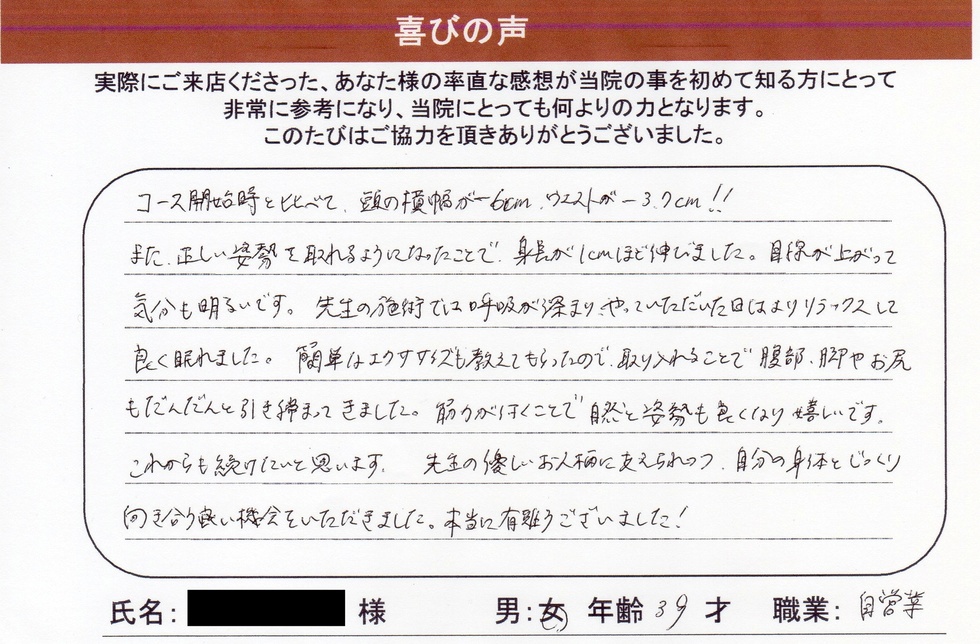 喜びの声
実際にご来店くださった、あなた様の率直な感想が当院の事を初めて知る方にとって
非常に参考になり、当院にとっても何よりの力となります。
このたびはご協力を頂きありがとうございました。
コース開始時と比べて、頭の横幅が-6cm、ウエストが-3.7cm!!
また、正しい姿勢を取れるようになったことで、身長が1cmほど伸びました。目線が上がって
気分も明るいです。 先生の施術では呼吸が深まり、やっていただいた日はよりリラックスして
良く眠れました。 簡単なエクササイズも教えてもらったので、取り入れることで腹部、脚やお尻
もだんだんと引き締まってきました。筋力が付くことで自然と姿勢も良くなり嬉しいです。
これからも続けたいと思います。 先生の優しいお人柄に支えられつつ、自分の身体とじっくり
向き合う良い機会をいただきました。本当に有難うございました!
氏名: 様 男:女 年齢 39 才 職業: 自営業